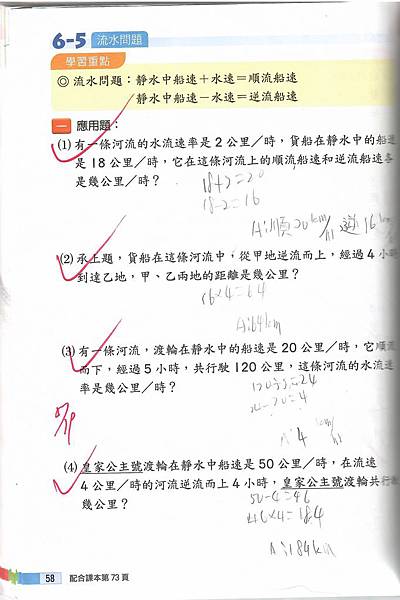 6-5 流水問題
學習重點
◎ 流水問題：靜水中船速＋水速＝順流船速
靜水中船速－水速＝逆流船速
一 應用題：
(1) 有一條河流的水流速率是 2 公里／時，貨船在靜水中的船速
是 18 公里／時，它在這條河流上的順流船速和逆流船速各
是幾公里／時？
18+2=20
18-2=16
A:順20km/時 逆16km
(2) 承上題，貨船在這條河流中，從甲地逆流而上，經過 4 小時
到達乙地，甲、乙兩地的距離是幾公里？
16×4=64
A:64km
(3) 有一條河流，渡輪在靜水中的船速是 20 公里／時，它順流
而下，經過 5 小時，共行駛 120 公里，這條河流的水流速
率是幾公里／時？
120÷5=24
24-20=4
A:4 km/時
(4) 皇家公主號渡輪在靜水中船速是 50 公里／時，在流速
4 公里／時的河流逆流而上 4 小時，皇家公主號渡輪共行
幾公里？
50-4=46
46×4=184
A:184km
58 配合課本第 73 頁